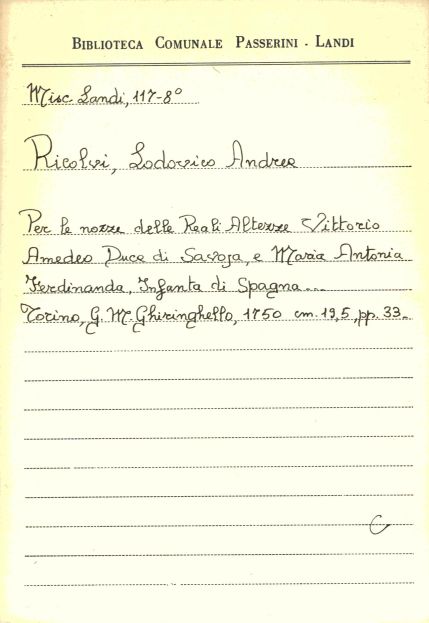 BIBLIOTECA COMUNALE PASSERINI - LANDI
Misc. Landi, 117-8°
Ricolvi, Lodovico Andrea
Per le nozze delle Reali Altezze Vittorio
Amedeo Duca di Savoja, e Maria Antonia
Ferdinanda, Infanta di Spagna...
Torino, G. M. Ghiringhello, 1750 cm. 19,5, pp. 33.
C